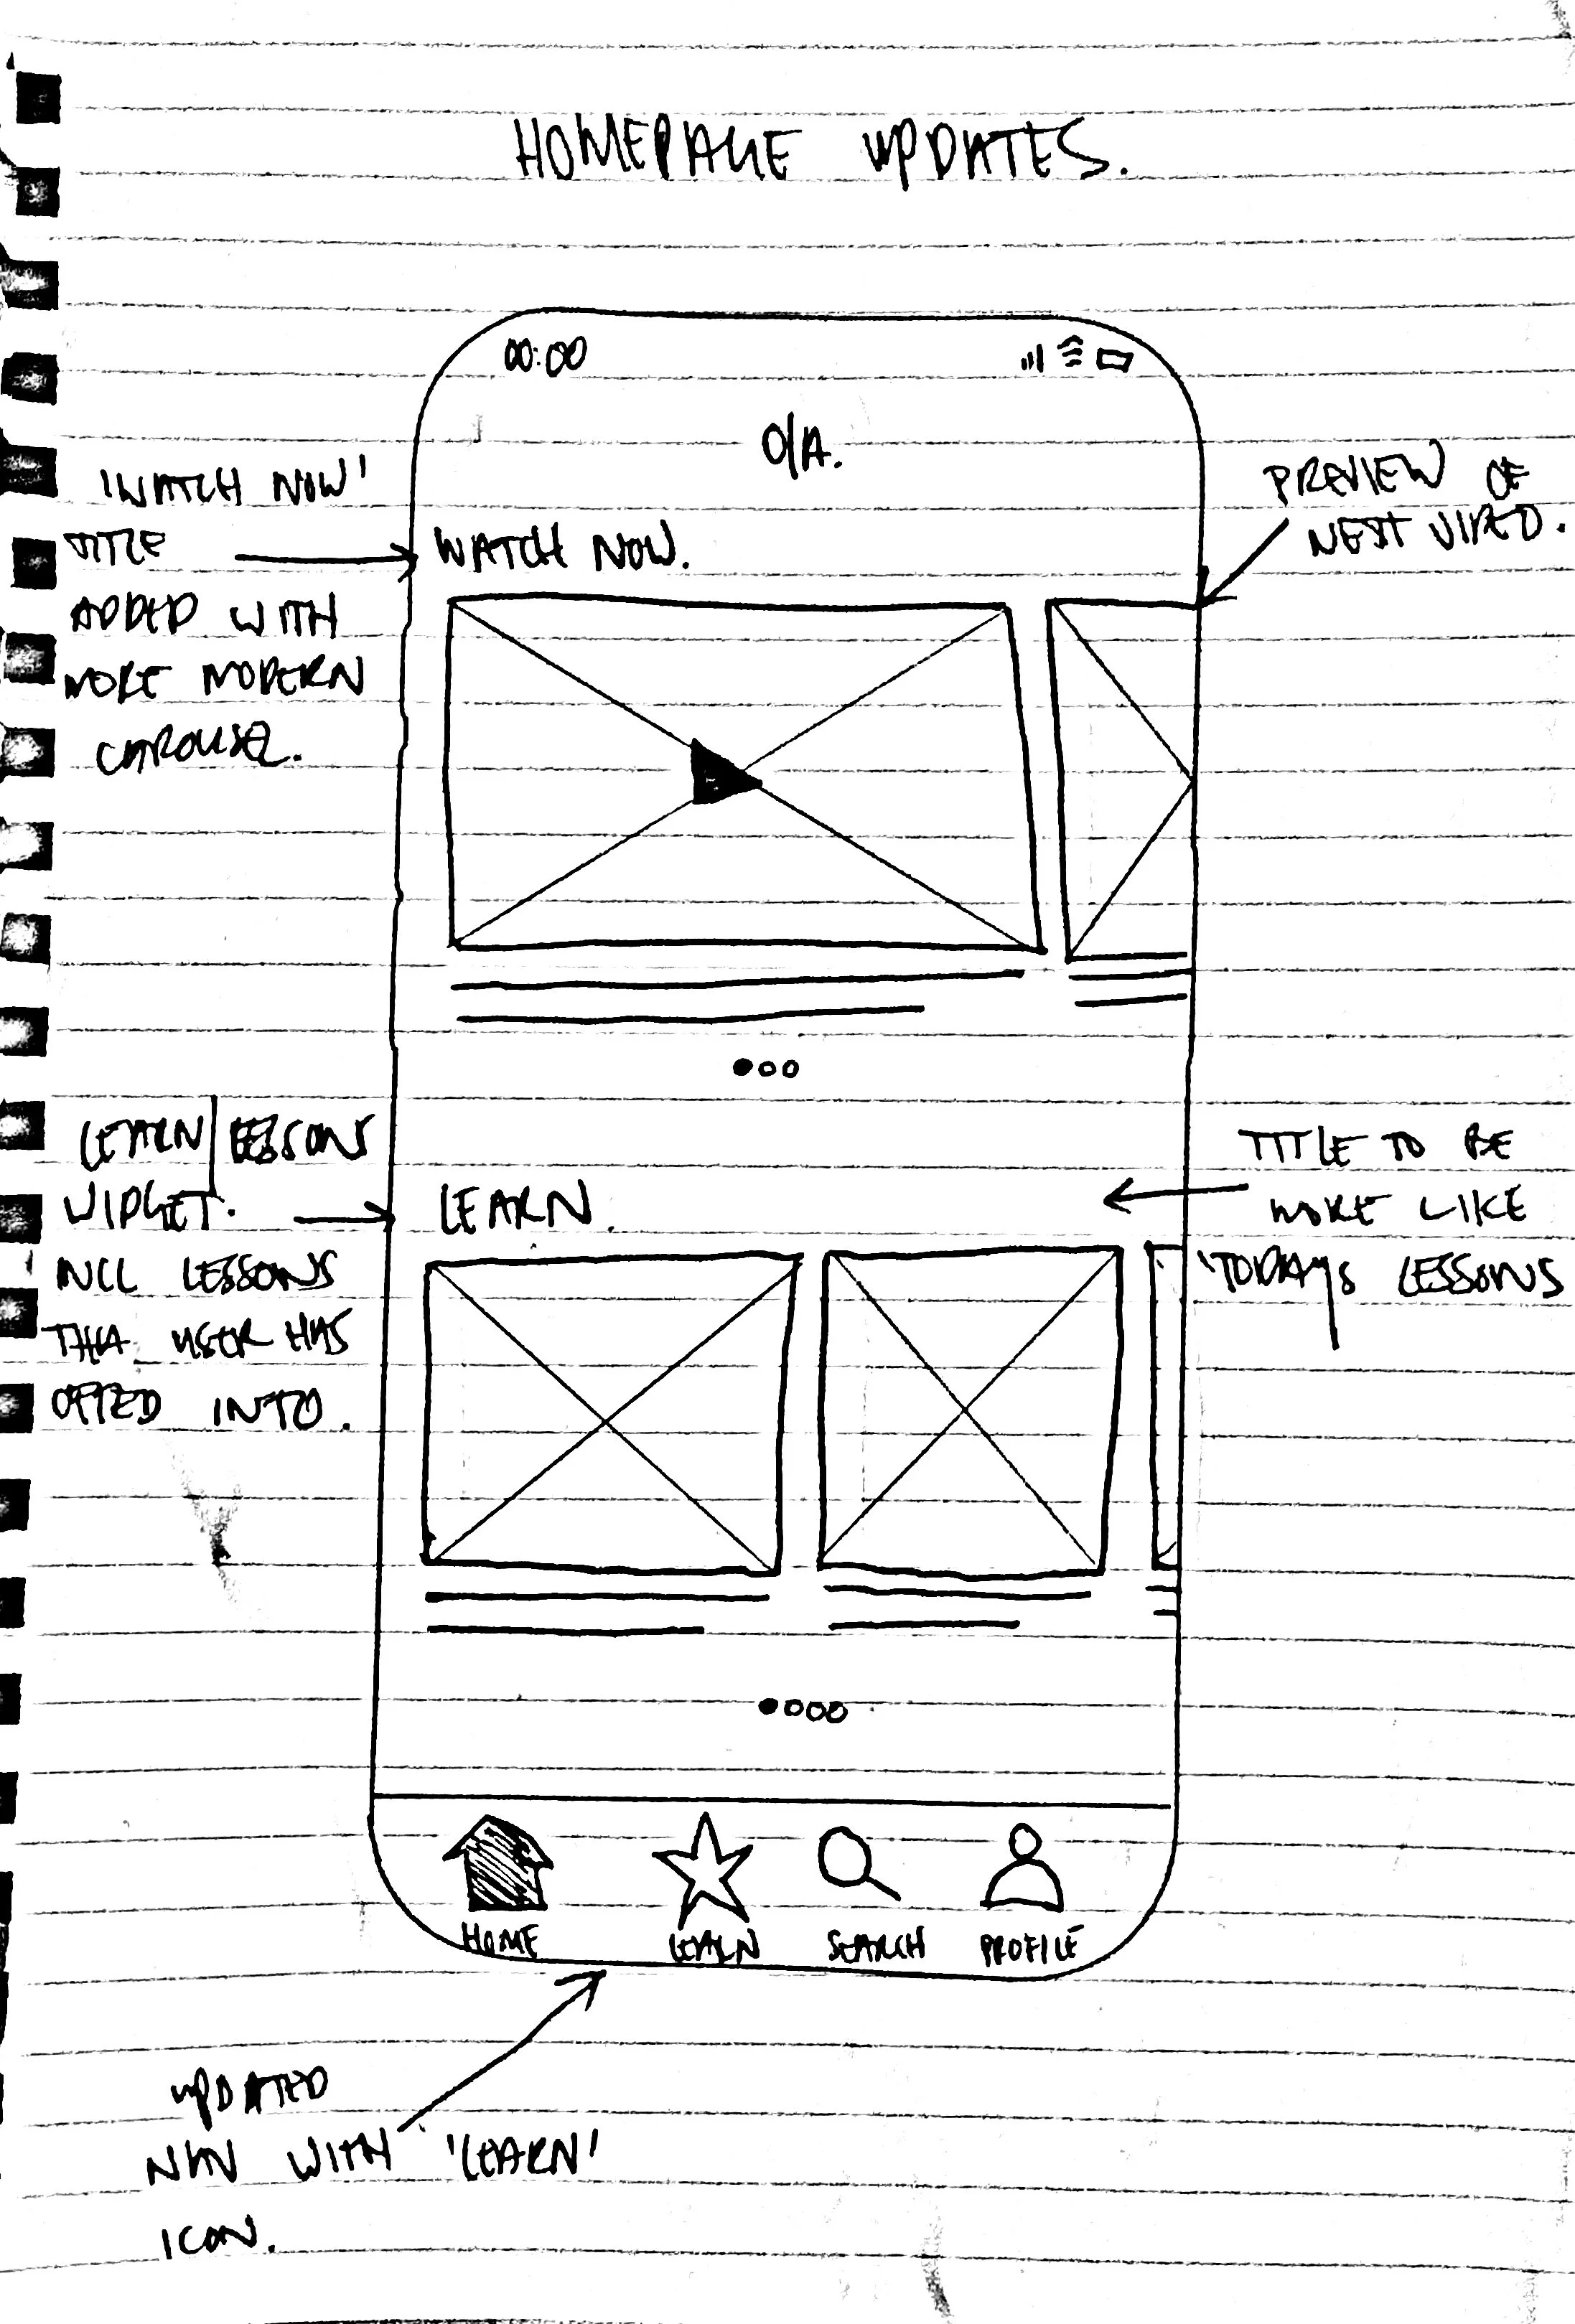 HOMEPAGE UPDATES.
00:00
O/A.
'WATCH NOW'
TITLE
ADDED WITH
MORE MODERN
CAROUSEL.
WATCH NOW.
PREVIEW OF
NEXT VIDEO.
LEARN/LESSONS
WIDGET.
INCL LESSONS
THA USER HAS
OPTED INTO.
LEARN.
TITLE TO BE
MORE LIKE
'TODAYS LESSONS
HOME
LEARN
SEARCH
PROFILE
UPDATED
NAV WITH 'LEARN'
ICON.